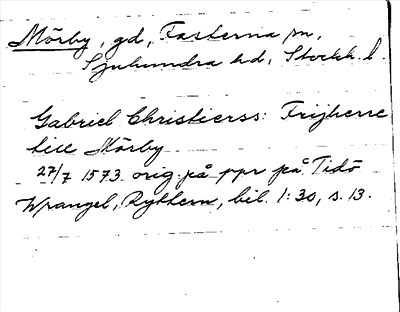 Mörby, gd, Fasterna sn,
Sjuhundra hd, Stockh. l.
Gabriel Christierss: Frijherre
till Mörby
27/7 1573. orig. på ppr på Tidö
Wrangel, Rythern, bil. 1:30, s. 13.